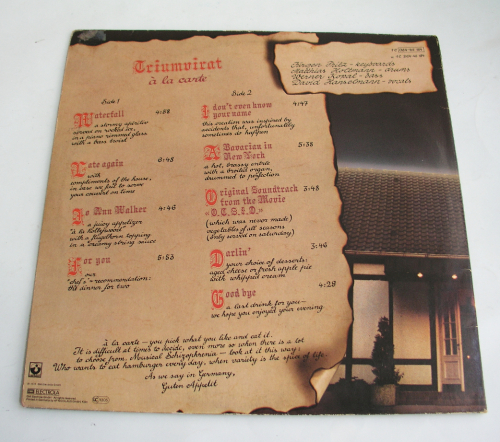 Triumvirat
à la carte
Jürgen Fritz - keyboards
Matthias Holtmann - drums
Werner Kopal - bass
David Hanselmann - vocals
Side 1
Waterfall 4:58
a stormy aperitif
serves on rocked ice,
in a piano rimmed glass
with a bass twist
Late again 6:48
with
compliments of the house,
in case we fail to serve
your concert on time
Jo Ann Walker 4:46
a juicy appetizer
"à la Hollywood"
with a flugelhorn topping
in a creamy string sauce
For you 5:53
our
"chef's"-recommendation:
the dinner for two
Side 2
I don't even know
your name 4:47
this creation was inspired by
accidents that, unfortunately
sometimes do happen
A Bavarian in
New York 5:38
a hot, brassy entrée
with a fruited organ,
drummed to perfection
Original Soundtrack 3:48
from the Movie
"O.C.S.I.D."
(which was never made)
vegetables of all seasons
(only served on saturday)
Darlin' 3:46
your choice of desserts:
aged cheese or fresh apple pie
with whipped cream
Good bye 4:29
a last drink for you —
we hope you enjoyed your evening
à la carte — you pick what you like and eat it.
It is difficult at times to decide, even more so when there is a lot
to choose from. Musical Schizophrenia — look at it this way:
Who wants to eat hamburger every day, when variety is the spice of life.
As we say in Germany,
Guten Appetit
EMI ELECTROLA